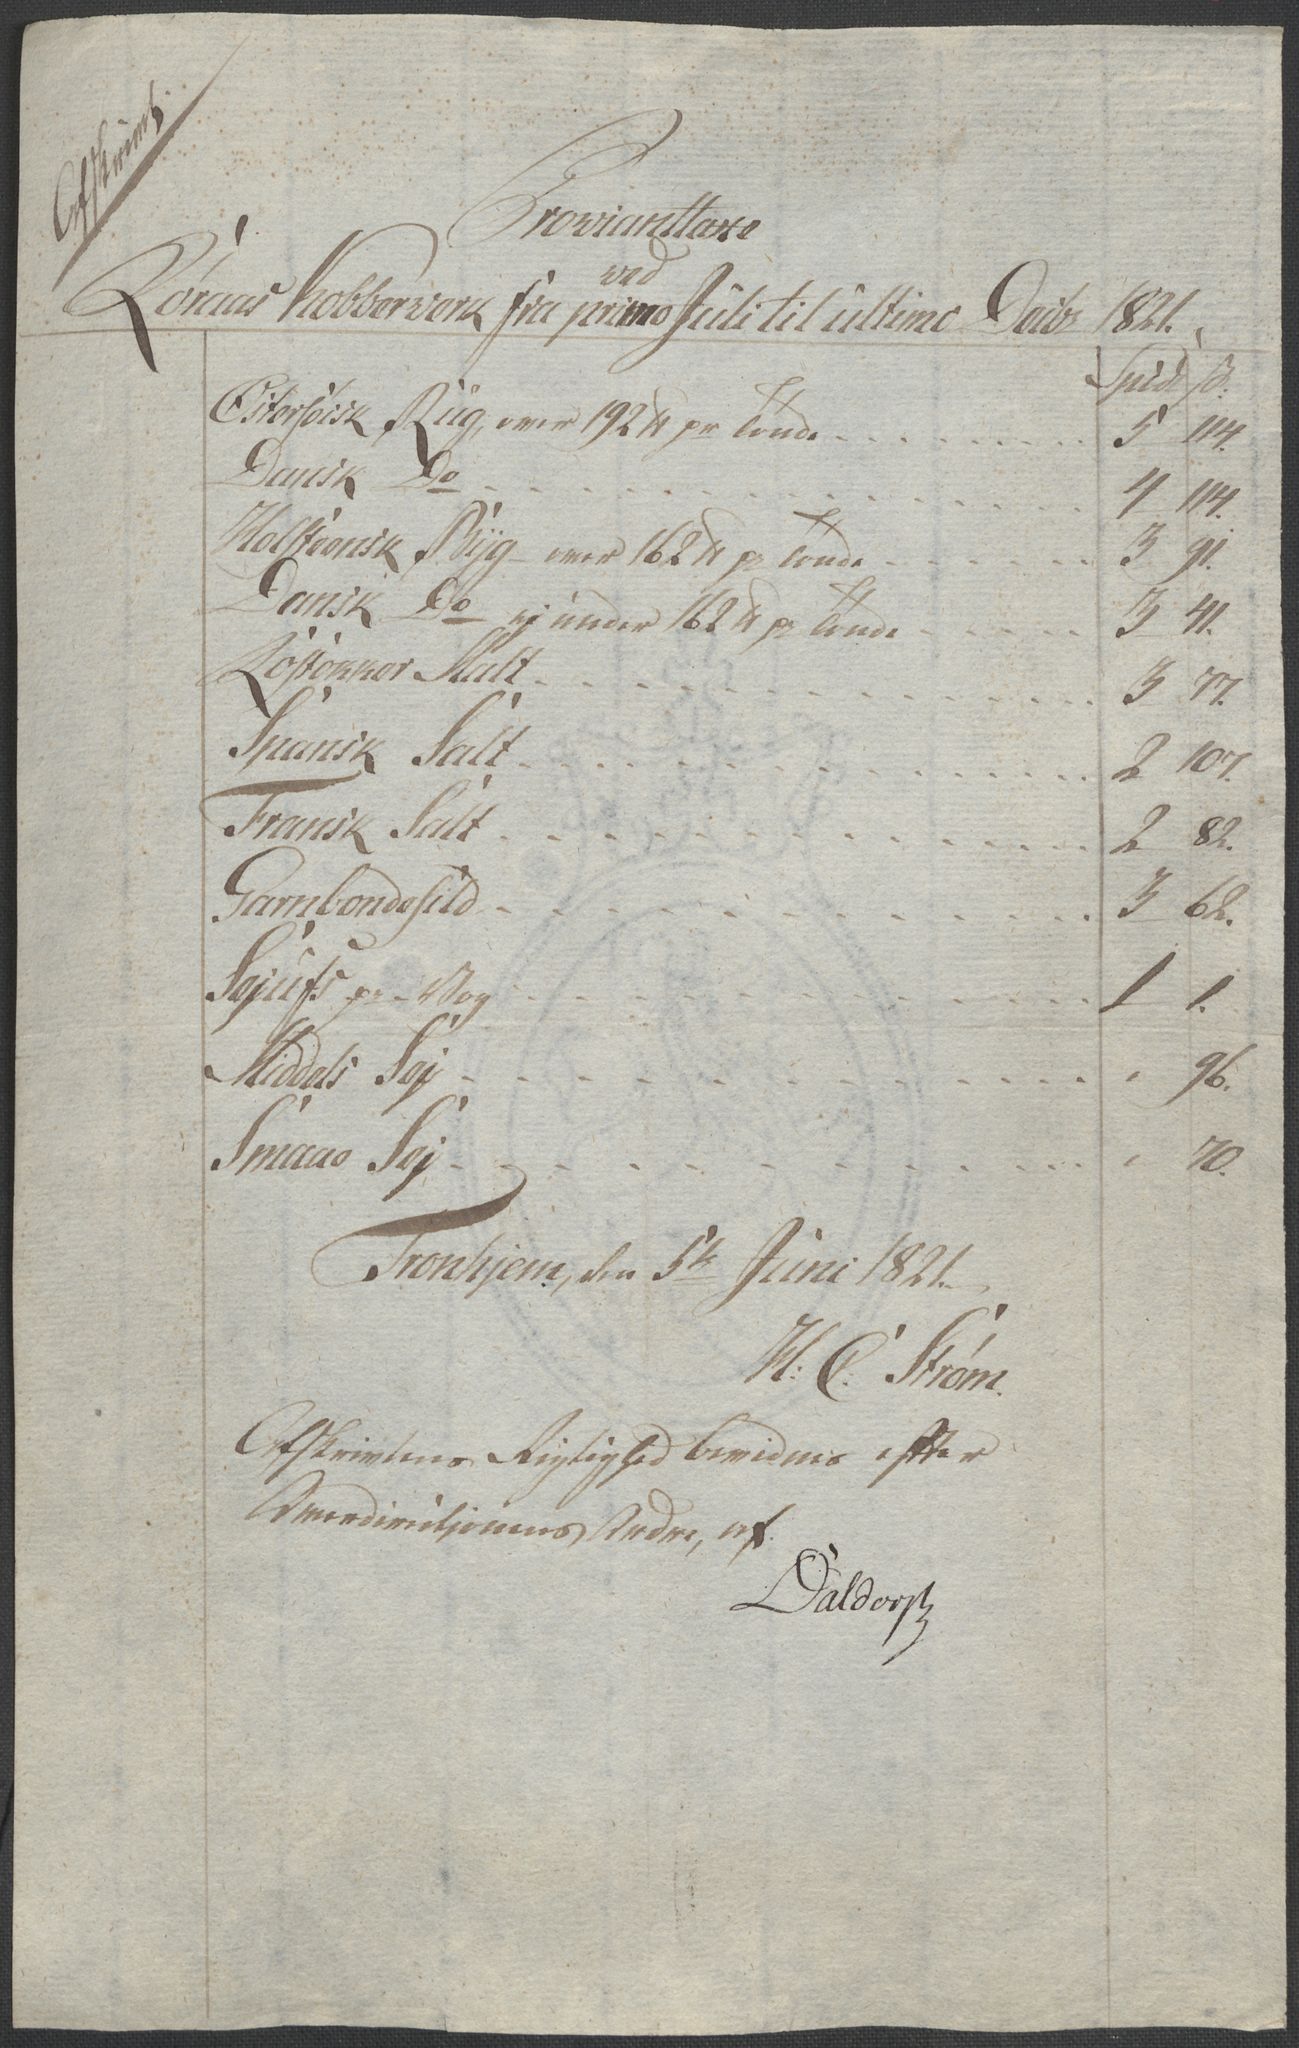 Afskrivt.
Provianttaxe
ved
Röraas Kobberverk fra primo Juli til ultimo Decbr 1821.
Spid. ß.
Östersöisk Rug, over 192 ℔ pr Tönde 5 114.
Dansk Do 4 114.
Holsteensk Byg over 162 ℔ pr Tönde 3 91.
Dansk Do ej under 162 ℔ pr Tönde 3 41.
Röstokker Malt 3 77.
Spansk Salt 2 107.
Fransk Salt 2 82.
Garnbondesild 3 62.
Sejufs pr Vog 1 1.
Middels Sej " 96.
Smaae Sej " 70.
Tronhjem, den 5te Juni 1821.
H: C: Strøm.
Afskrivtens Rigtighed bevidnes efter
Overdirectionens Ordre, af
Daldorff